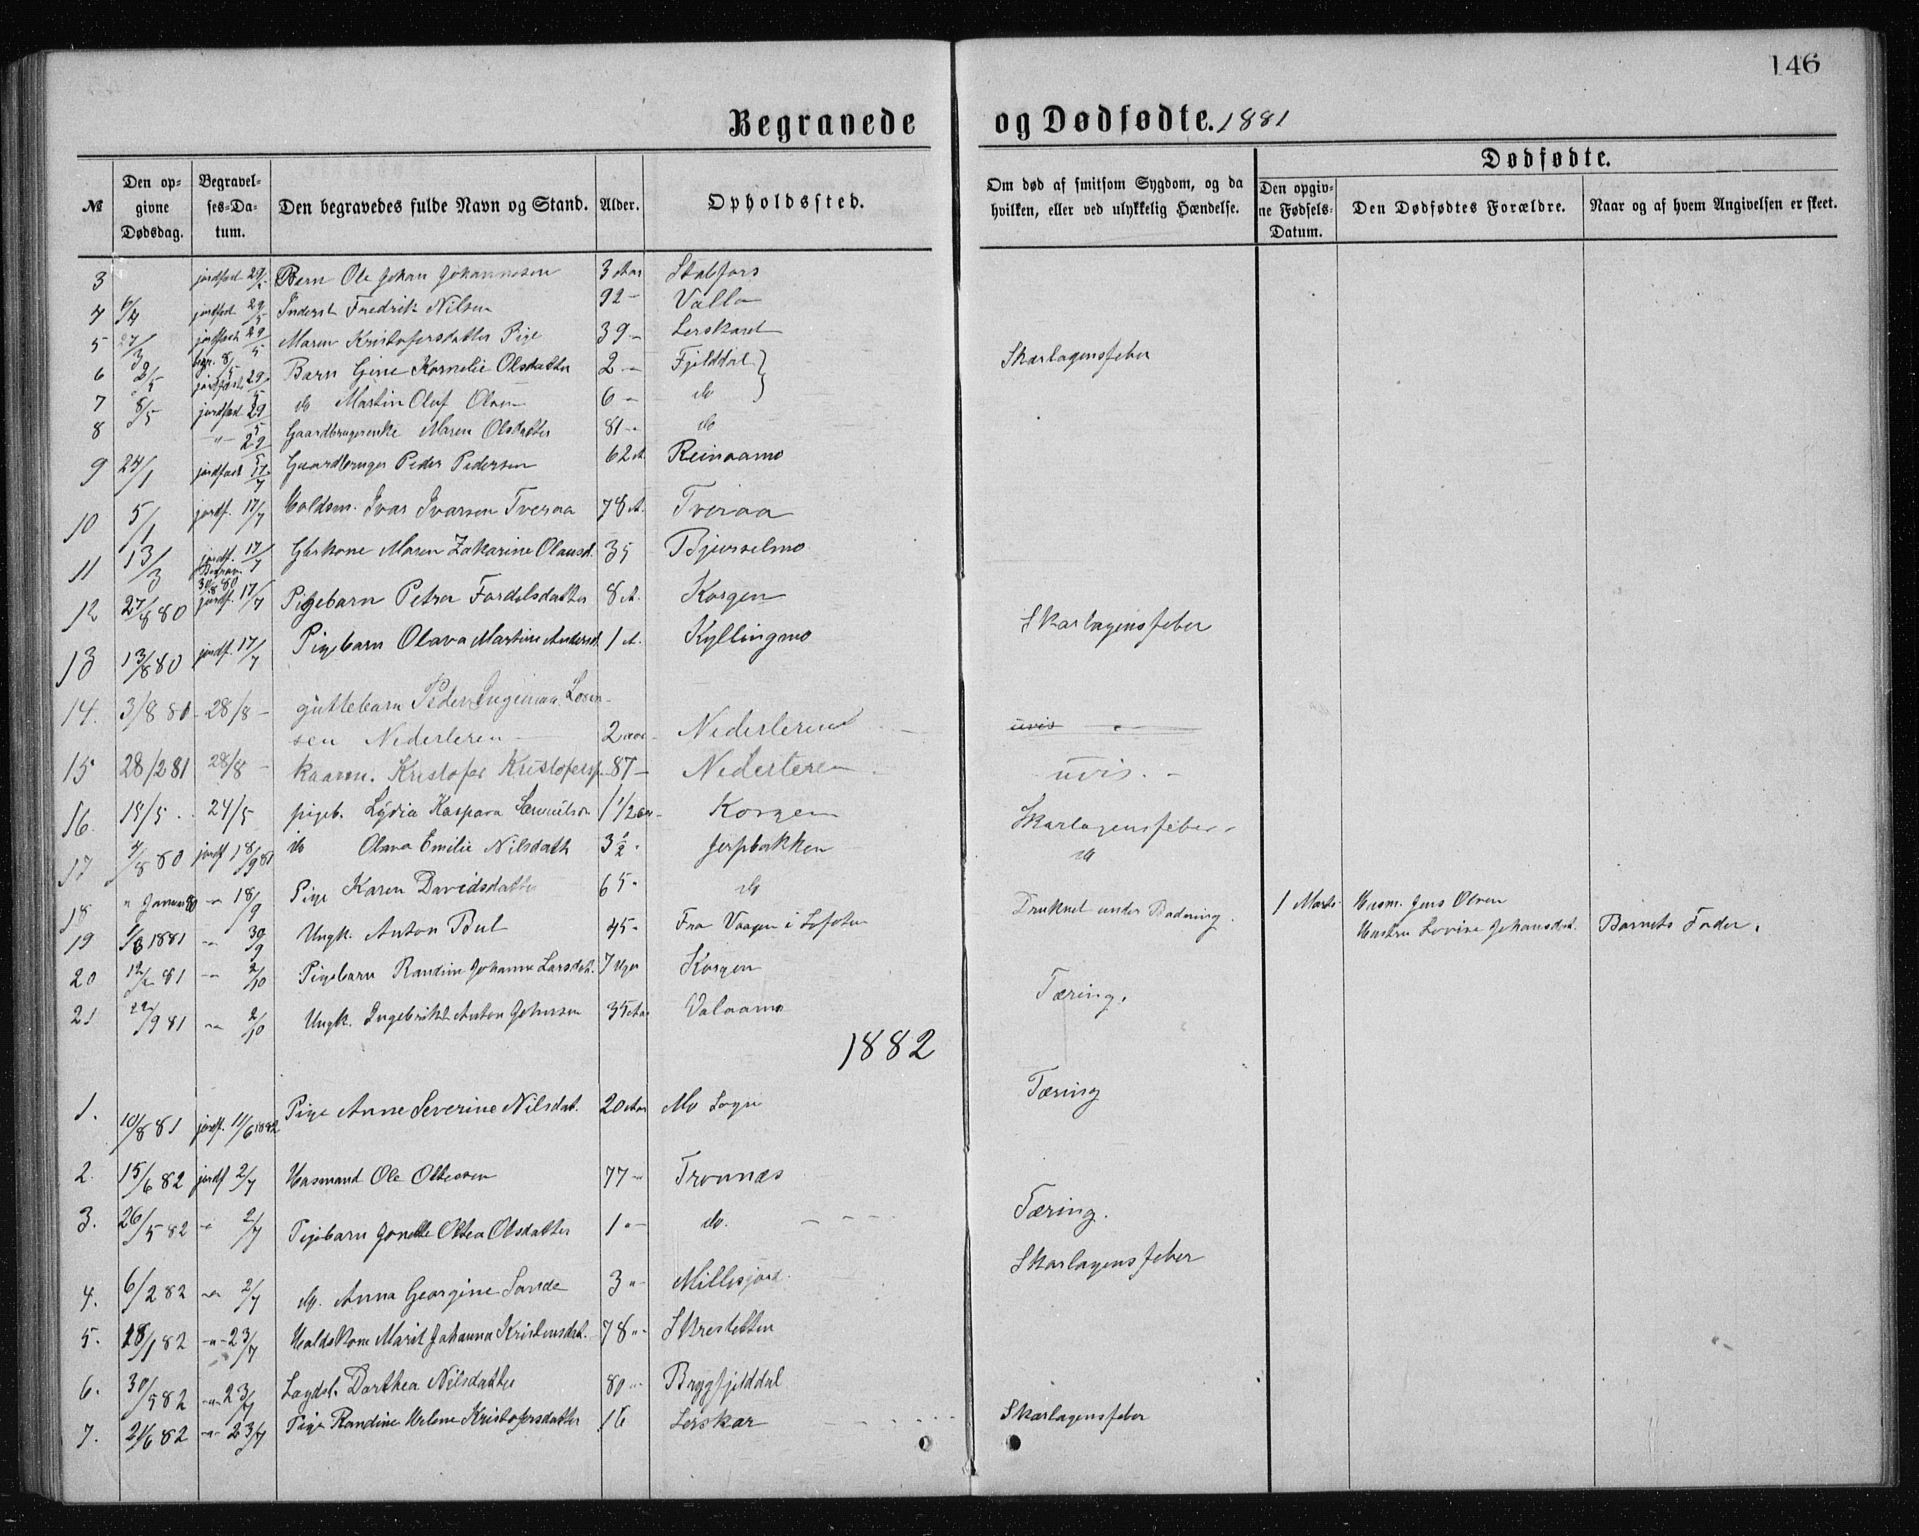 146
Begravede og Dødfødte. 1881
Dødfødte.
№
Den opgivne Dødsdag.
Begravelses-Datum.
Den begravedes fulde Navn og Stand.
Alder.
Opholdssted.
Om død af smitsom Sygdom, og da hvilken, eller ved ulykkelig Hændelse.
Den opgivne Fødsels-Datum.
Den Dødfødtes Forældre.
Naar og af hvem Angivelsen er skeet.
3 jordfæst 29/5 Barn Ole Johan Johannesen 3 Aar Stabfors
4 6/4 jordfæst 29/5 Inderst Fredrik Nilsen 92 — Valla
5 27/3 jordfæst 29/5 Maren Kristofersdatter Pige 39 — Lerskard
6 2/5 begr. 8/5 jordfæst 29/5 Barn Gine Kornelie Olsdatter 2 — Fjelddal Skarlagensfeber
7 8/5 jordfæst 29/5 do Martin Oluf Olsen 6 — do
8 — " — 29/5 Gaardbrugerenke Maren Olsdatter 81 — do
9 24/1 jordfæst 17/7 Gaardbruger Peder Pedersen 62 A. Reinaamo
10 5/1 jordf. 17/7 Holdsm. Ivar Ivarsen Tveraa 78 A. Tveraa
11 13/3 jordf. 17/7 Gbrkone Maren Zakarine Olausd. 35 Bjurselmo
12 27/8 80 Begrav. 30/8 80 jordf. 17/7 Pigebarn Petra Fordelsdatter 8 A. Korgen
13 13/8 80 jordf. 17/7 Pigebarn Olava Martine Andersd. 1 A. Kyllingmo Skarlagensfeber
14. 3/8 81 - 28/8 - guttebarn Peder Ingeman Lorentsen Nederleren — 2 aar - Nederleren uvis
15 28/2 81 28/8 - kaarm. Kristofer Kristofersen 87 — Nederleren uvis. -
16. 15/5. 24/5 pigeb. Lydia Kaspara Samuelsen 1 1/2 aar - Korgen Skarlagensfeber.
17 4/8 80 jordf 18/9 81 do Olava Emilie Nilsdatt 3 1/2 " Jerpbakken do
18 " Januar 80 — " — 18/9 Pige Karen Davidsdatter 65 " do
19 1/8 1881 " 30/9 Ungk. Anton Bul 45 " Fra Vaagen i Lofoten Druknet under Badning. 1 Marts Husm. Jens Olsen
Hustru Lovise Johansdat. Barnets Fader.
20 12/2 81 — " — 2/10 Pigebarn Randine Johanne Larsdat. 7 Uger Korgen
21 22/9 81 — " — 2/10 Ungk. Ingebrikt Anton Johnsen 35 Aar Valaamo Tæring.
1882
1. 10/8 81 jordf. 11/6 1882 Pige Anne Severine Nilsdat. 20 Aar Mo Sogn Tæring
2. 15/6 82 jordf 2/7 Husmand Ole Ottessen 77 — Tronnæs
3. 26/5 82 " 2/7 Pigebarn Jonette Oktea Olsdatter 1 " — do. Tæring.
4. 6/2 82 — " — 2/7 do. Anna Georgine Sande 3 " Millisjord. Skarlagensfeber
5. 18/1 82 — " — 23/7 Holdskone Marit Johanna Kristensdat. 78 " Skresletten
6. 30/5 82 — " — 23/7 Lægdsl. Dorthea Nilsdatter 80 " Bryggfjelddal
7. 21/6 82 — " — 23/7 Pige Randine Helene Kristofersdatter 16 Lerskar Skarlagensfeber